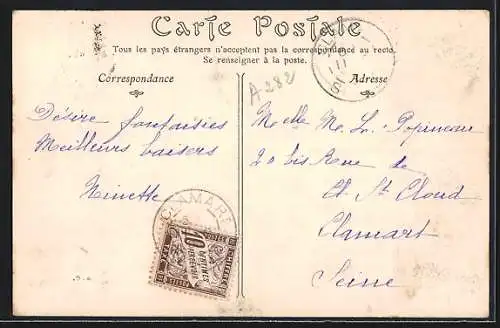 Carte Postale
Tous les pays étrangers n'acceptent pas la correspondance au recto.
Se renseigner à la poste.
Correspondance
Adresse
A282
Désire fantaisies
Meilleurs baisers
Ninette
Melle M. L. Popineau
20 bis Rue de
St Cloud
Clamart
Seine
CLAMART
10
CENTIMES
À PERCEVOIR